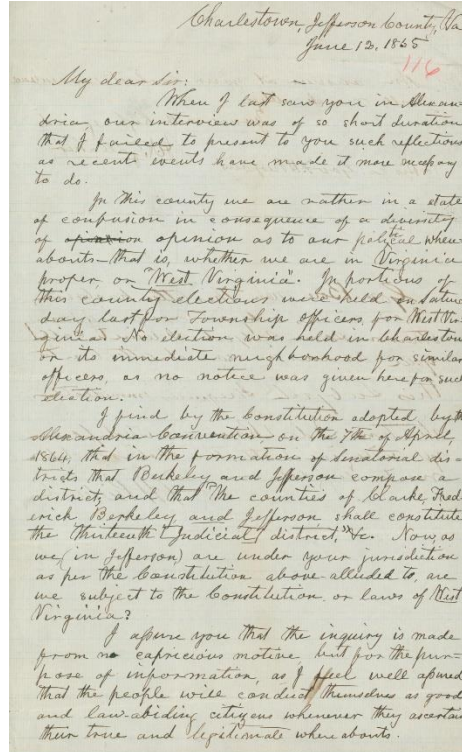 Charlestown, Jefferson County, Va
June 12, 1865
116
My dear Sir:
When I last saw you in Alexan-
dria our interview was of so short duration
that I failed to present to you such reflections
as recent events have made it more necessary
to do.
In this county we are rather in a state
of confusion in consequence of a diversity
of opinion opinion as to our political where
abouts—that is, whether we are in Virginia
proper or "West Virginia". In portions of
this county elections were held on Satur
day last for Township officers, for West Vir
ginia. No election was held in Charlestown
or its immediate neighborhood for similar
officers, as no notice was given here for such
election.
I find by the Constitution adopted by the
Alexandria Convention on the 7th of April,
1864, that in the formation of Senatorial dis=
tricts that Berkeley and Jefferson compose a
district, and that "The counties of Clarke, Fred
erick Berkeley and Jefferson shall constitute
the Thirteenth Judicial district," &c. Now, as
we (in Jefferson) are under your jurisdiction
as per the Constitution above alluded to, are
we subject to the Constitution, or laws of West
Virginia?
I assure you that the inquiry is made
from no capricious motive but for the pur=
pose of information, as I feel well assured
that the people will conduct themselves as good
and law-abiding citizens whenever they ascertain
their true and legitimate whereabouts.